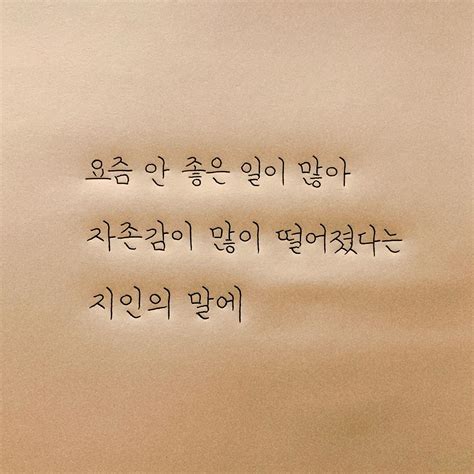 요즘 안 좋은 일이 많아
자존감이 많이 떨어졌다는
지인의 말에